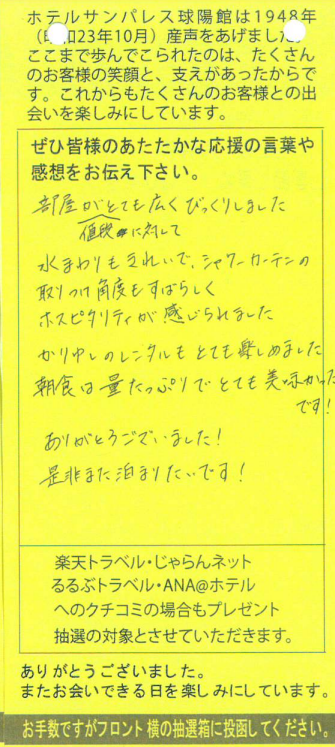 ホテルサンパレス球陽館は1948年
(和23年10月)産声をあげました
ここまで歩んでこられたのは、たくさん
のお客様の笑顔と、支えがあったからで
す。これからもたくさんのお客様との出
会いを楽しみにしています。
ぜひ皆様のあたたかな応援の言葉や
感想をお伝え下さい。
部屋がとても広くびっくりしました
値段に対して
水まわりもきれいで、シャワーカーテンの
取りつけ角度もすばらしく
ホスピタリティが感じられました
かりゆしのレンタルもとても楽しめました
朝食は量たっぷりでとても美味かった
です!
ありがとうございました!
是非また泊まりたいです!
楽天トラベル・じゃらんネット
るるぶトラベル・ANA@ホテル
へのクチコミの場合もプレゼント
抽選の対象とさせていただきます。
ありがとうございました。
またお会いできる日を楽しみにしています。
お手数ですがフロント横の抽選箱に投函してください。